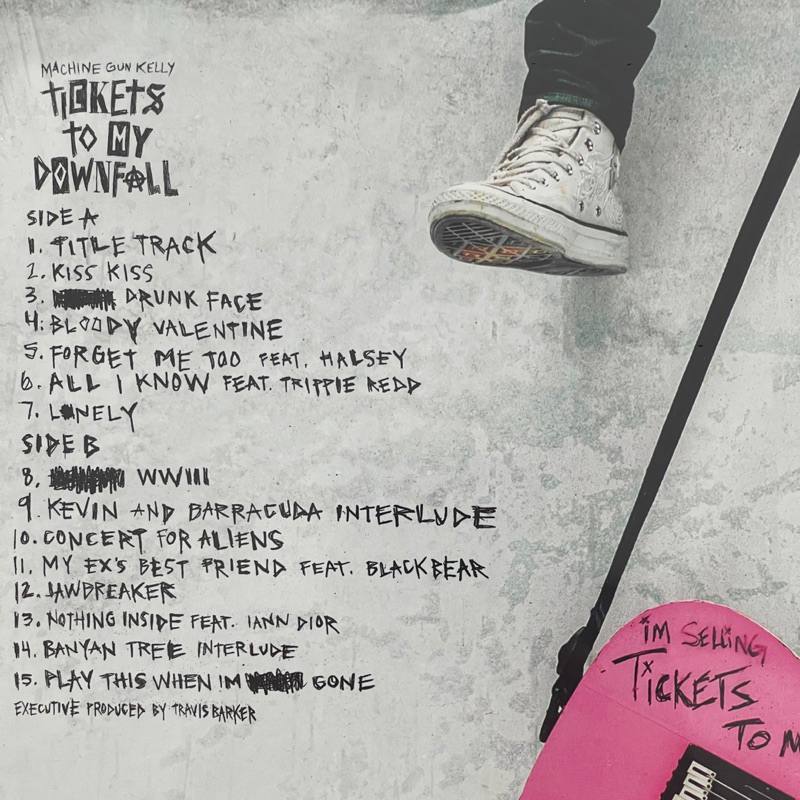 MACHINE GUN KELLY
TICKETS
TO MY
DOWNFALL
SIDE A
1. TITLE TRACK
2. KISS KISS
3. DRUNK FACE
4. BLOODY VALENTINE
5. FORGET ME TOO FEAT. HALSEY
6. ALL I KNOW FEAT. TRIPPIE REDD
7. LONELY
SIDE B
8. WWIII
9. KEVIN AND BARRACUDA INTERLUDE
10. CONCERT FOR ALIENS
11. MY EX'S BEST FRIEND FEAT. BLACKBEAR
12. JAWBREAKER
13. NOTHING INSIDE FEAT. IANN DIOR
14. BANYAN TREE INTERLUDE
15. PLAY THIS WHEN IM GONE
EXECUTIVE PRODUCED BY TRAVIS BARKER
iM SELLING
TiCKETS
TO M